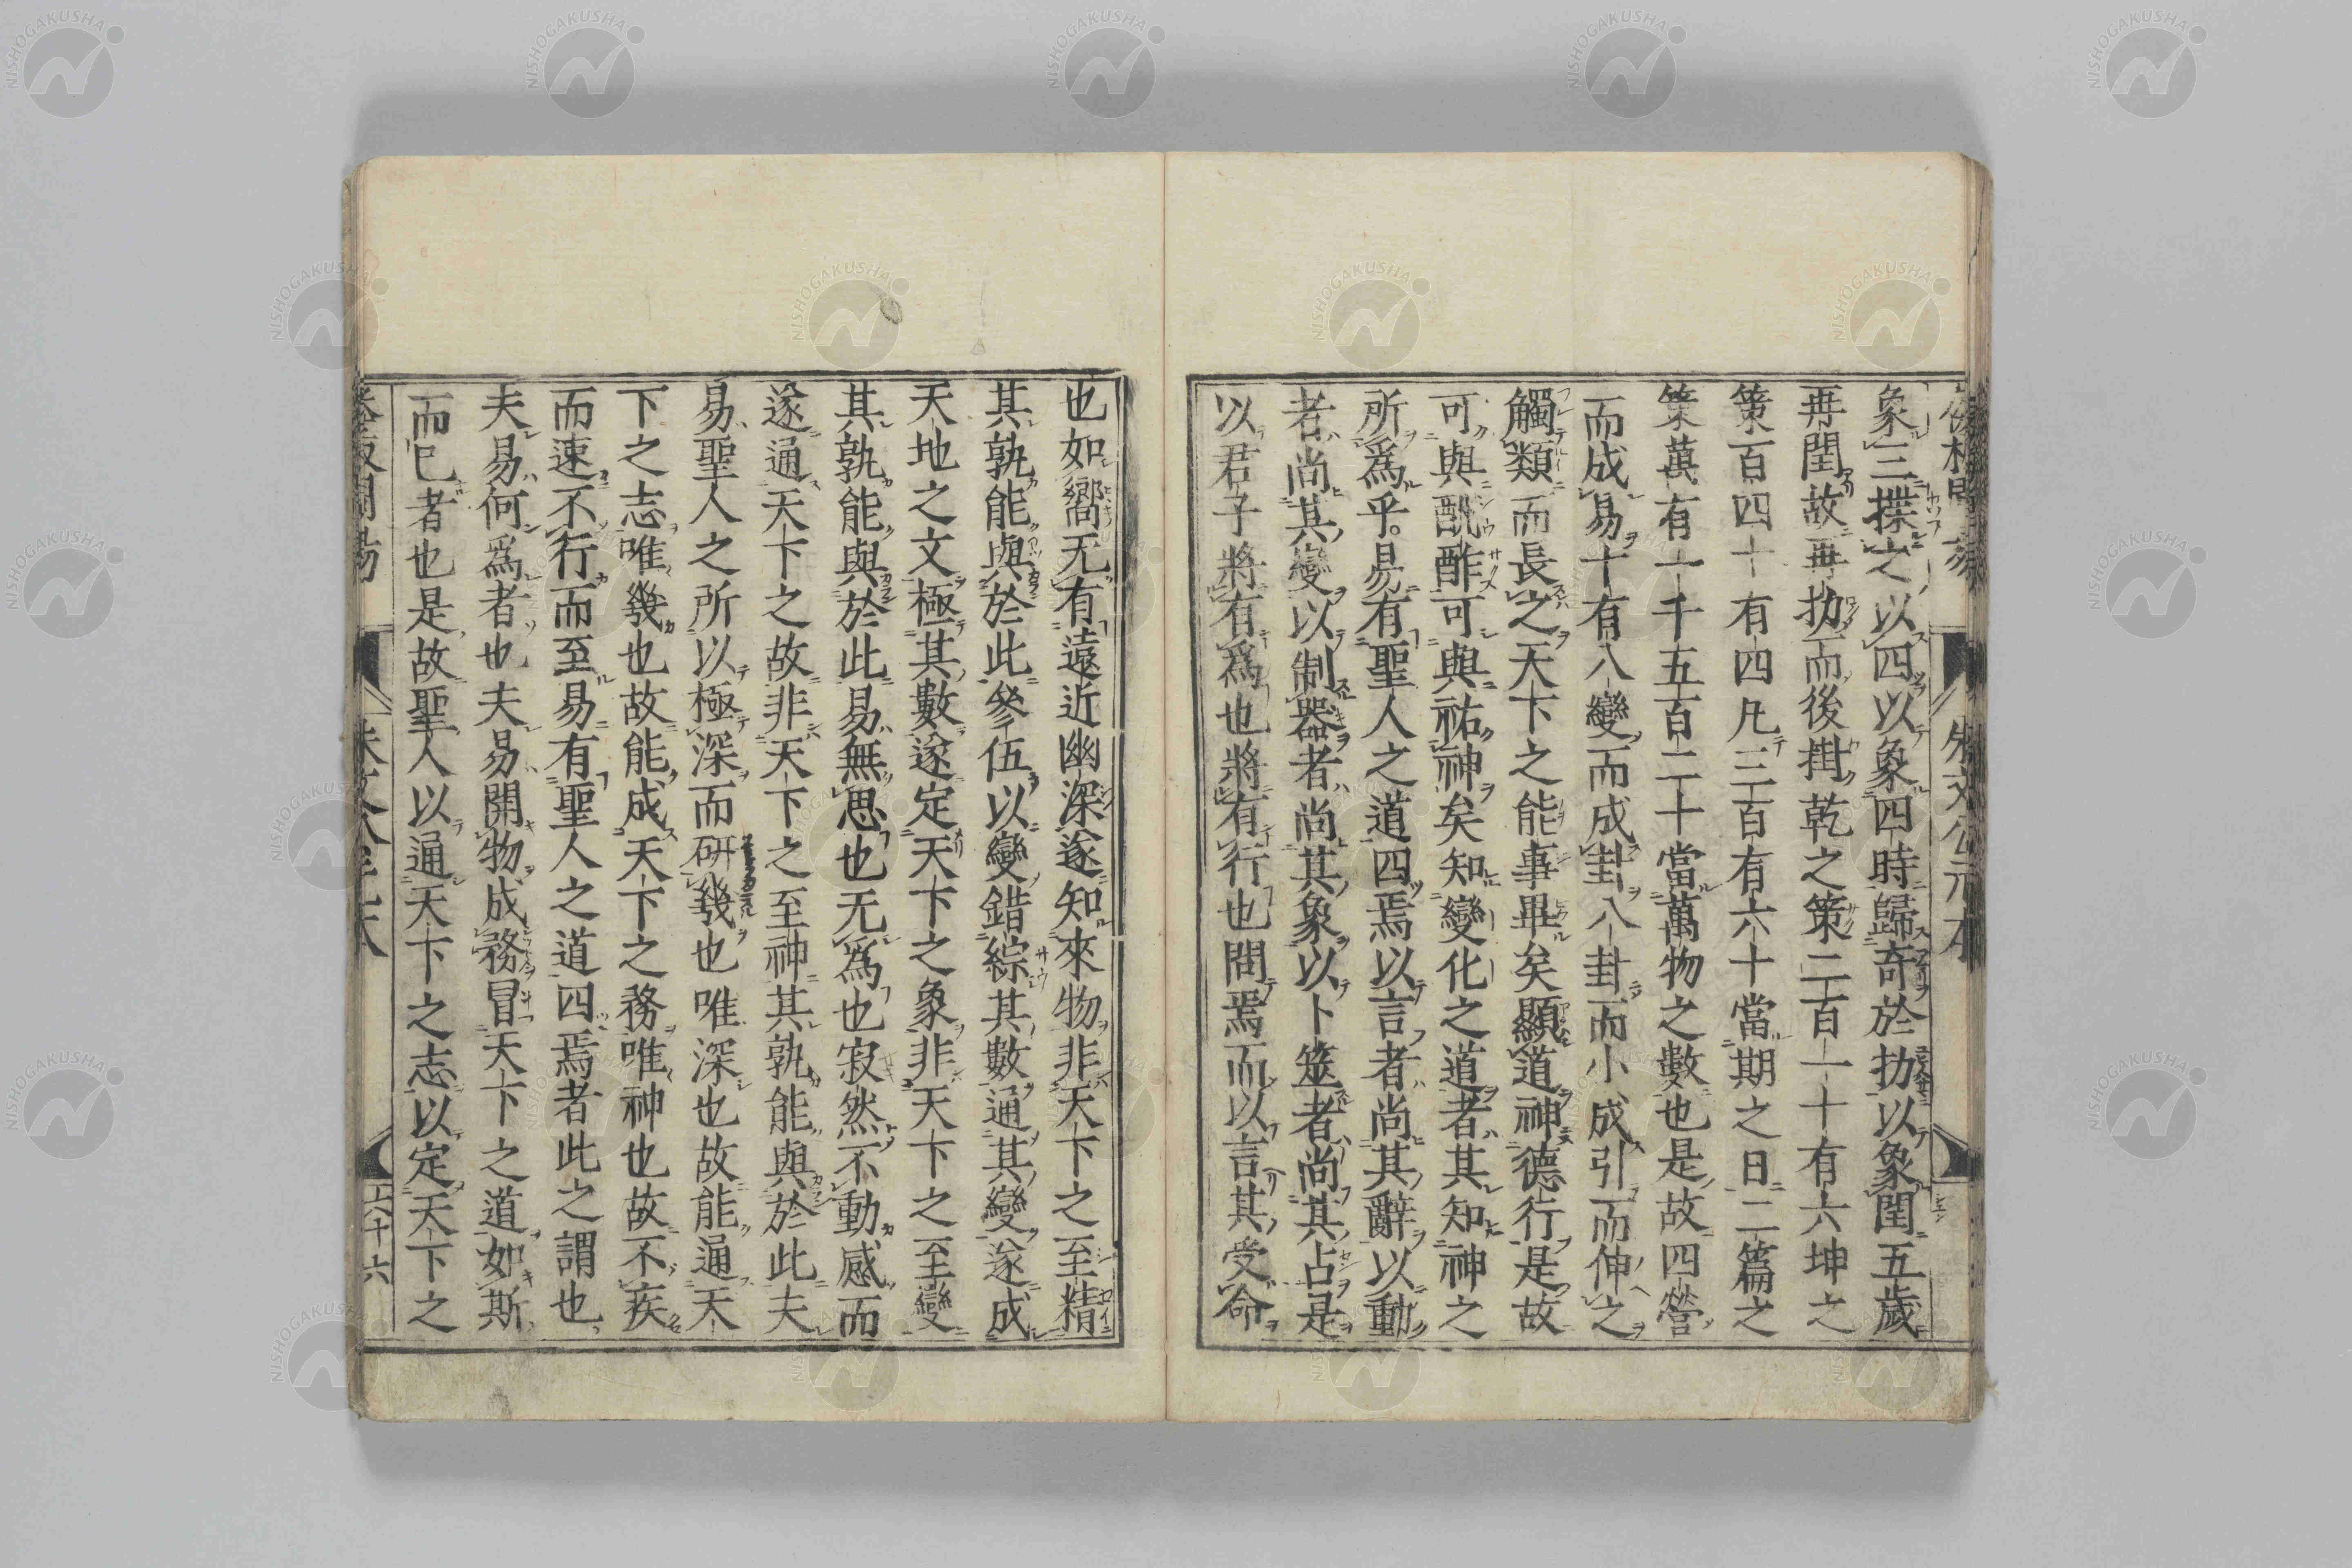 象三揲之以四以象四時歸奇於扐以象閏五歲
再閏故再扐而後掛乾之策二百一十有六坤之
策百四十有四凡三百有六十當期之日二篇之
策萬有一千五百二十當萬物之數也是故四營
而成易十有八變而成卦八卦而小成引而伸之
觸類而長之天下之能事畢矣顯道神德行是故
可與酬酢可與祐神矣知變化之道者其知神之
所爲乎易有聖人之道四焉以言者尚其辭以動
者尚其變以制器者尚其象以卜筮者尚其占是
以君子將有爲也將有行也問焉而以言其受命
也如嚮无有遠近幽深遂知來物非天下之至精
其孰能與於此參伍以變錯綜其數通其變遂成
天地之文極其數遂定天下之象非天下之至變
其孰能與於此易無思也无爲也寂然不動感而
遂通天下之故非天下之至神其孰能與於此夫
易聖人之所以極深而研幾也唯深也故能通天
下之志唯幾也故能成天下之務唯神也故不疾
而速不行而至易有聖人之道四焉者此之謂也
夫易何爲者也夫易開物成務冒天下之道如斯
而已者也是故聖人以通天下之志以定天下之
六十六
NISHOGAKUSHA